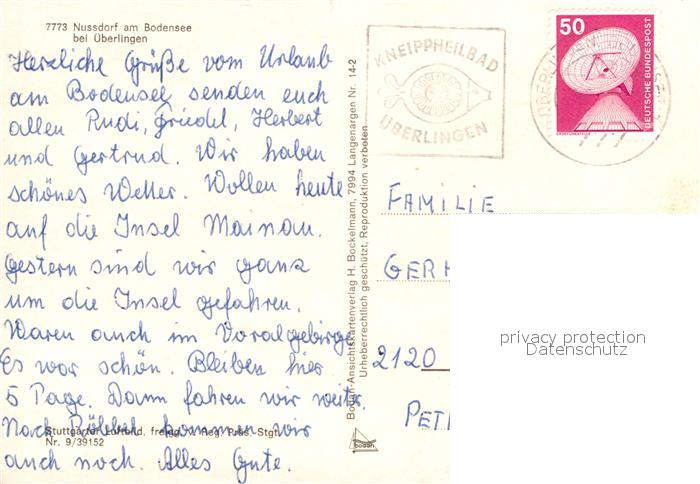 7773 Nussdorf am Bodensee
bei Überlingen
Herzliche Grüße vom Urlaub
am Bodensee senden euch
allen Rudi, Friedel, Herbert
und Gertrud. Wir haben
schönes Wetter. Wollen heute
auf die Insel Mainau.
Gestern sind wir ganz
um die Insel gefahren.
Waren auch im Voralgebirge
Es war schön. Bleiben hier
5 Tage. Dann fahren wir weiter.
Nach kommen wir
auch noch. Alles Gute.
Stuttgarter Luftbild, freig. v. Reg. Präs. Stgt.
Nr. 9/39152
Bodan-Ansichtskartenverlag H. Bockelmann, 7994 Langenargen Nr. 14-2
Urheberrechtlich geschützt, Reproduktion verboten
bodan
KNEIPPHEILBAD
ÜBERLINGEN
50
DEUTSCHE BUNDESPOST
ERDEFUNKSTELLE
FAMILIE
GERH
2120
PET
privacy protection
Datenschutz